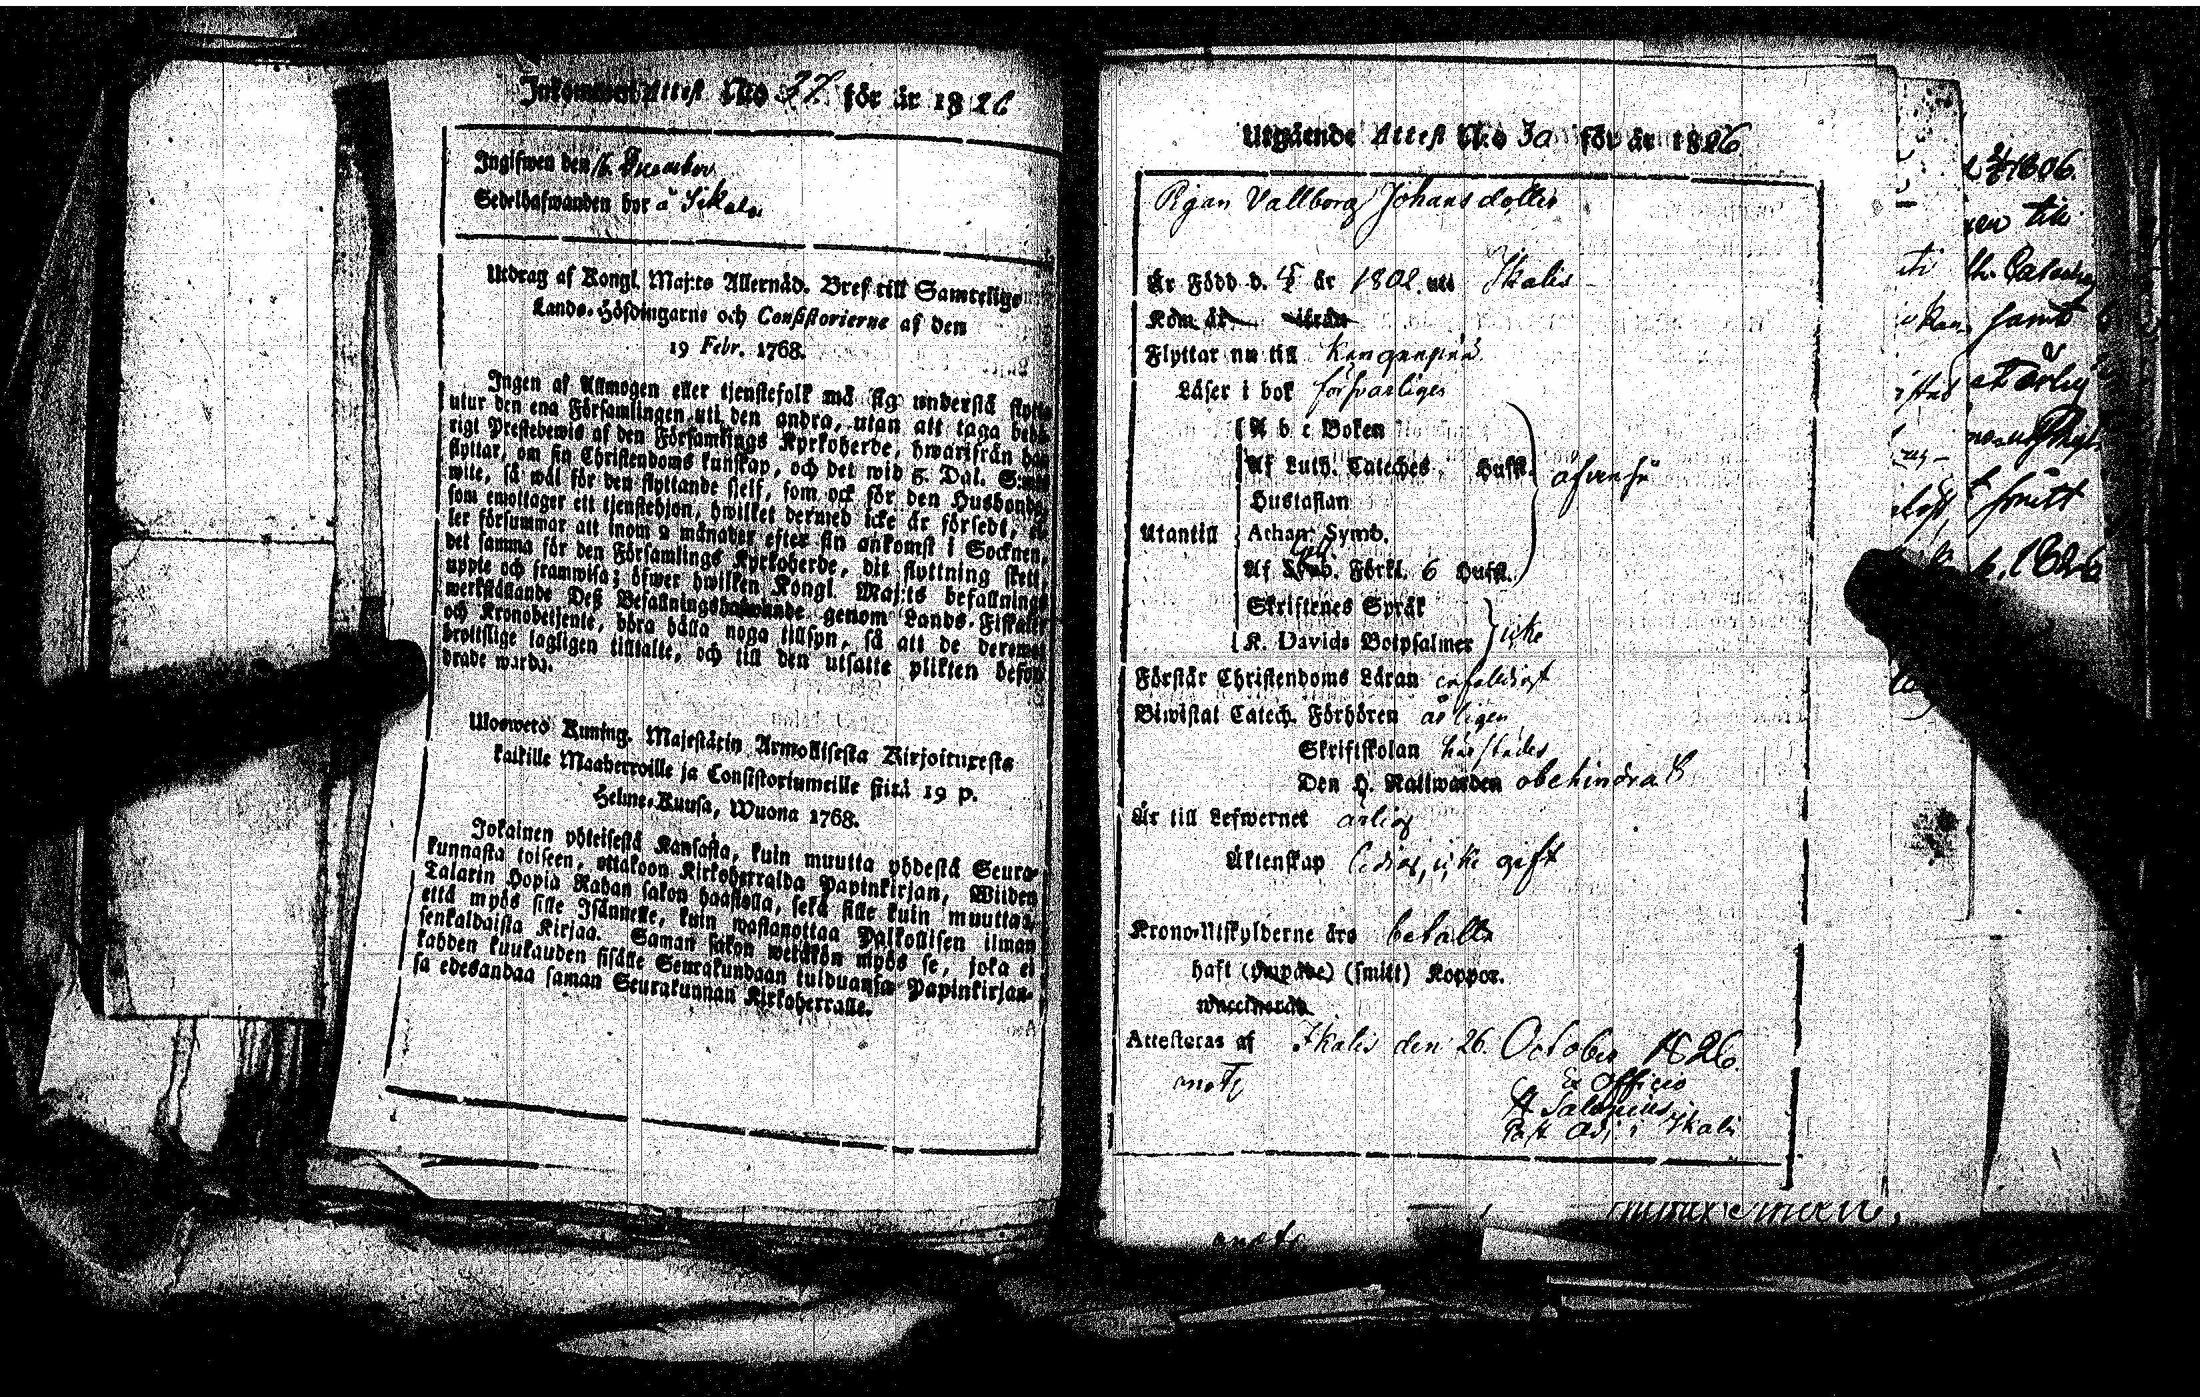 Inkommen Attest No 37. för år 1826
Ingifwen den 16. December
Sedelhafwanden bor å Sikala
Utdrag af Kongl. Maj:ts Allernåd. Bref till Samtelige
Lands-Höfdingarne och Consistorierne af den
19 Febr. 1768.
Ingen af Allmogen eller tjenstefolk må sig understå flytta
utur den ena Församlingen uti den andra, utan att taga behö-
rigt Prestebewis af den Församlings Kyrkoherde, hwarifrån han
flyttar, om sin Christendoms kunskap, och det wid 5. Dal. S:mts
wite, så wäl för den flyttande sjelf, som ock för den Husbonde,
som emottager ett tjenstehjon, hwilket dermed icke är försedt, el-
ler försummar att inom 2 månader efter sin ankomst i Socknen,
det samma för den Församlings Kyrkoherde, dit flyttning skett,
uppte och framwisa; öfwer hwilken Kongl. Maj:ts befallnings
werkställande Deß Befallningshafwande genom Lands-Fiskaler
och Kronobetjente, böra hålla noga tillsyn, så att de deremot
brottslige lagligen tilltalte, och till den utsatte plikten befor-
drade warda.
Uloswetö Kuning. Majestätin Armollisesta Kirjoituxesta
kaikille Maaherroille ja Consistoriumeille siitä 19 p.
Helme-Kuusa, Wuona 1768.
Jokainen yhteisestä Kansasta, kuin muutta yhdestä Seura-
kunnasta toiseen, ottakoon Kirkoherralda Papinkirjan, Wiiden
Talarin Hopia Rahan sakon haastolla, sekä sille kuin muuttaa,
että myös sille Isännelle, kuin wastanottaa Palkollisen ilman
senkaldaista Kirjaa. Saman sakon wetäkön myös se, joka ei
kahden kuukauden sisälle Seurakundaan tulduansa Papinkirjan-
sa edesandaa saman Seurakunnan Kirkoherralle.
Utgående Attest No 30 för år 1826
Pigan Vallborg Johansdotter
Är Född d. år 1802 uti Ikalis
Kom år ifrån
Flyttar nu till
Läser i bok försvarligen
A b c Boken
Af Luth. Cateches Hufst. äfvenså
Hustaflan
Utantill Athan. Symb.
Af Förkl. 6 Hufst.
Skriftenes Språk
K. Davids Botpsalmer icke
Förstår Christendoms Läran enfaldigt
Biwistat Catech. Förhören årligen
Skriftskolan härstädes
Den H. Nattwarden obehindrad
Är till Lefwernet ärlig
Äktenskap ledig, icke gift
Krono-Utskylderne äro betalte
haft (ympade) (smitt) Koppor.
waccinerad.
Attesteras af Ikalis den 26. October 1826.
Ex Officio
Past Adj i Ikalis
1806.
till
samt
smitt
1826